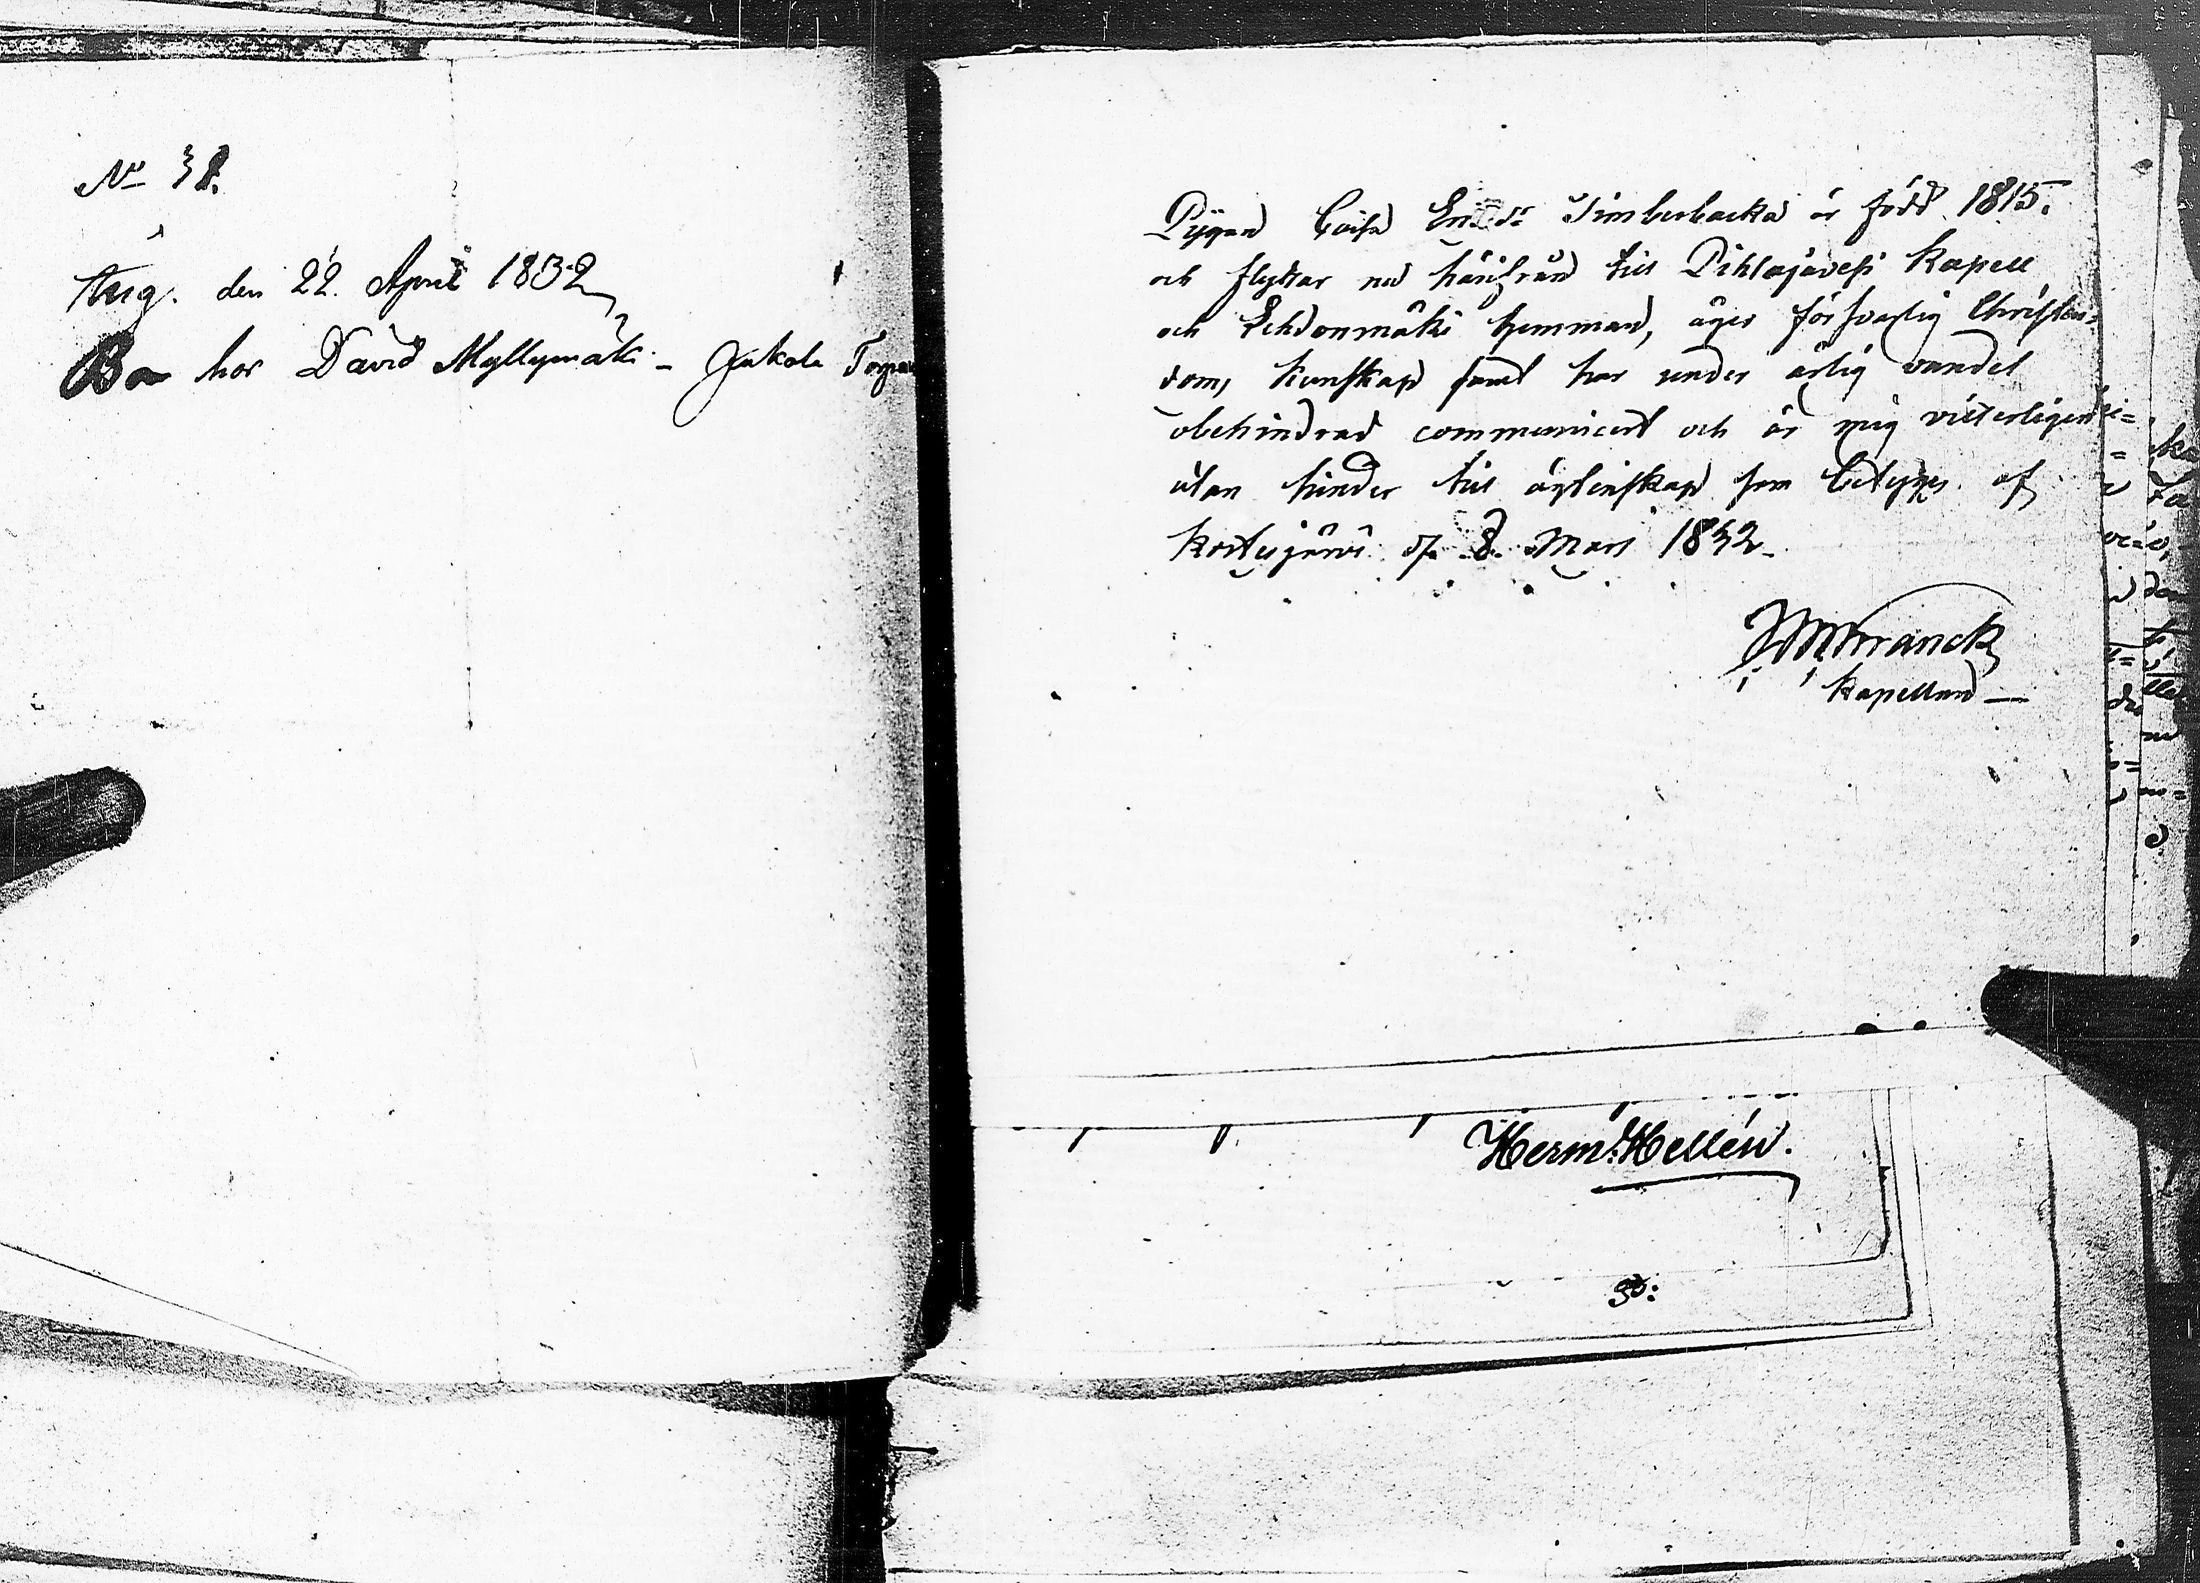 No 38.
Ang. den 22. April 1832
Bor hos David Myllymäki - Jakola Torpa
Pigan Caisa Ersdr Timberbacka är född 1815.
och flyttar nu härifrån till Pihlajavesi Kapell
och Lehdonmäki hemman, äger försvarlig Christen-
doms kunskap samt har under ärlig vandel
obehindrad communicerat och är mig vitterligen
utan hinder till ägtenskap som betygas af
Kortesjärvi d. 8. Mars 1832
Franck
Kapellan
Herm: Hellén.